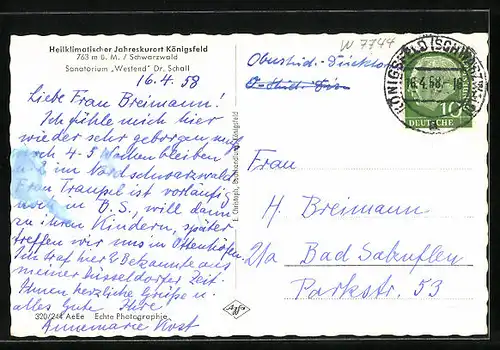 Heilklimatischer Jahreskurort Königsfeld
763 m ü. M. / Schwarzwald
Sanatorium „Westend" Dr. Schall
16.4.58
Liebe Frau Breimann!
Ich fühle mich hier
wieder sehr geborgen und
noch 4-5 Wochen bleiben
im Nordschwarzwald
Frau Traupel ist vorläufig
noch in B.S., will dann
zu ihren Kindern, später
treffen wir uns in Ottenhöfen.
Ich traf hier 2 Bekannte aus
meiner Düsseldorfer Zeit.
Ihnen herzliche Grüße u.
alles Gute Ihre
Annemarie Kost
320/244 AeEe Echte Photographie
E. Christoph, Buchhandlung, Königsfeld
W 7744
KÖNIGSFELD (SCHWARZWALD)
16.4.58
10
DEUTSCHE
Frau
H. Breimann
21a Bad Salzuflen
Parkstr. 53